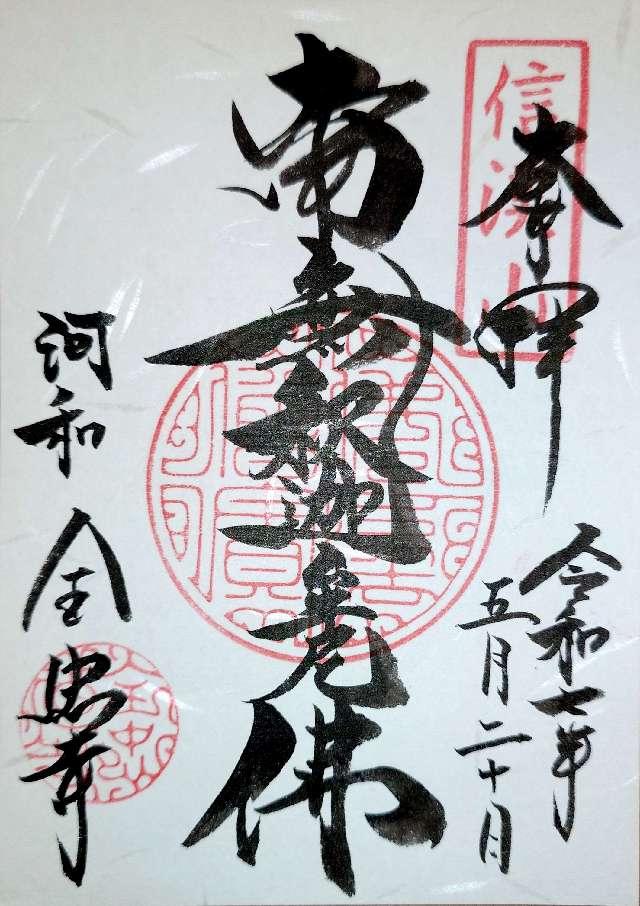 奉拝
令和七年
五月二十日
南無釈迦牟尼佛
河和 全忠寺